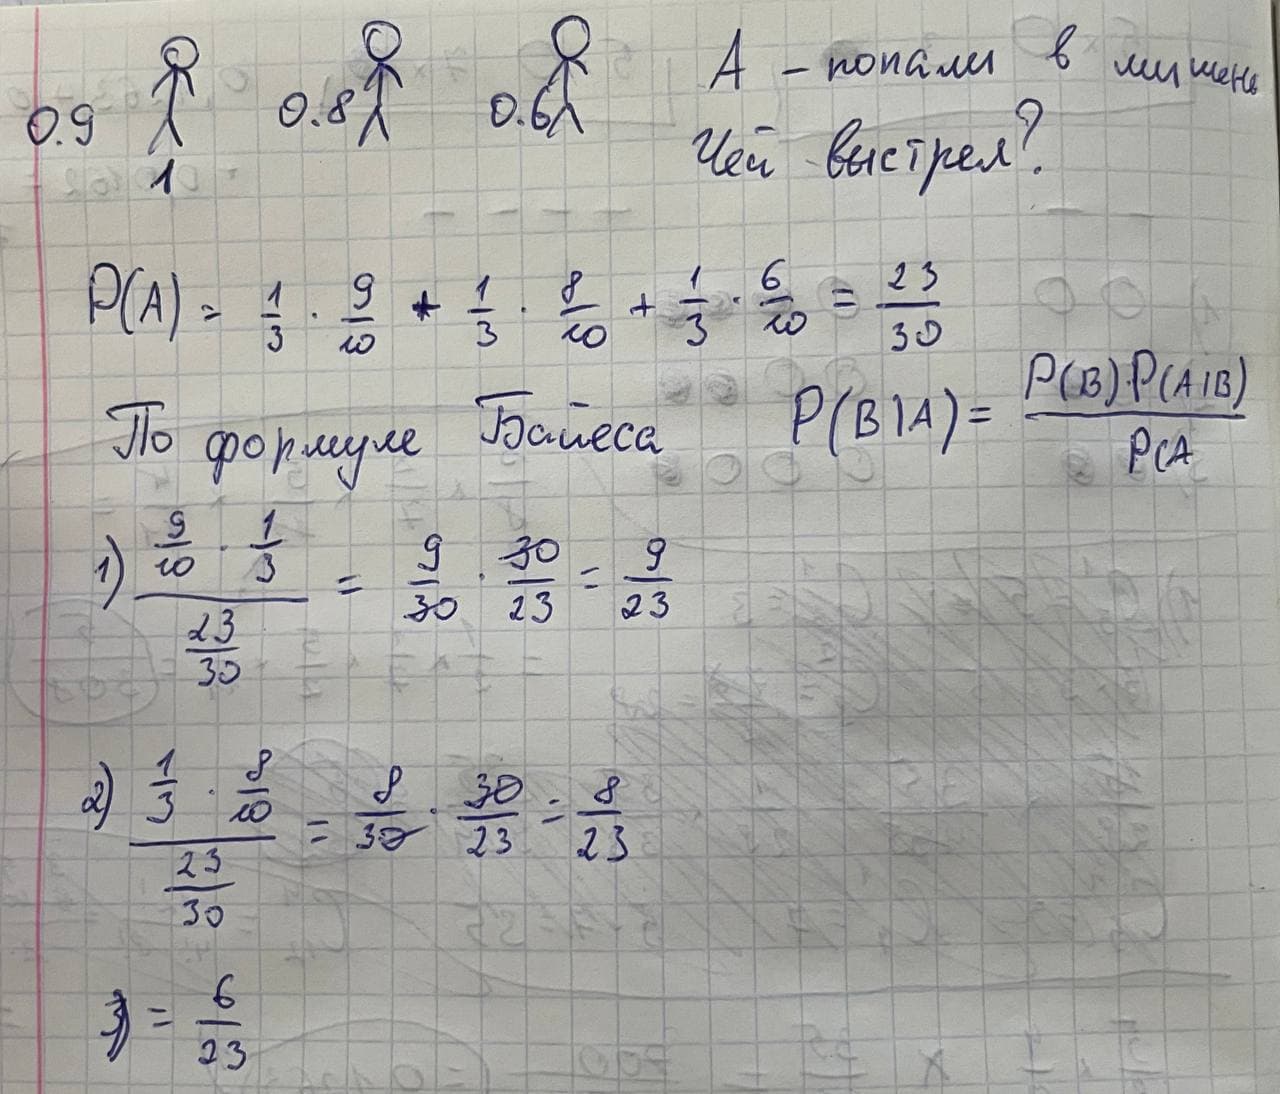 0.9 0.8 0.6 А – попали в мишень
1 Чей выстрел?
P(A) = 1/3 · 9/10 + 1/3 · 8/10 + 1/3 · 6/10 = 23/30
По формуле Байеса P(B|A) = P(B)·P(A|B) / P(A
1) (9/10 · 1/3) / (23/30) = 9/30 · 30/23 = 9/23
2) (1/3 · 8/10) / (23/30) = 8/30 · 30/23 = 8/23
3) = 6/23